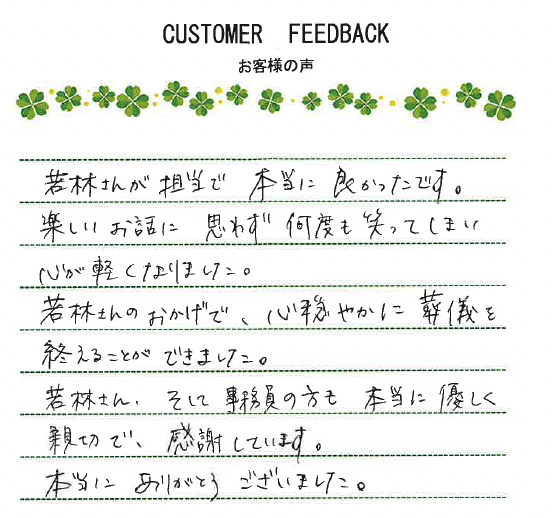 CUSTOMER FEEDBACK
お客様の声
若林さんが担当で 本当に 良かったです。
楽しいお話に 思わず 何度も笑ってしまい
心が軽くなりました。
若林さんのおかげで、心穏やかに 葬儀を
終えることができました。
若林さん、そして事務員の方も 本当に優しく
親切で、感謝しています。
本当に ありがとう ございました。